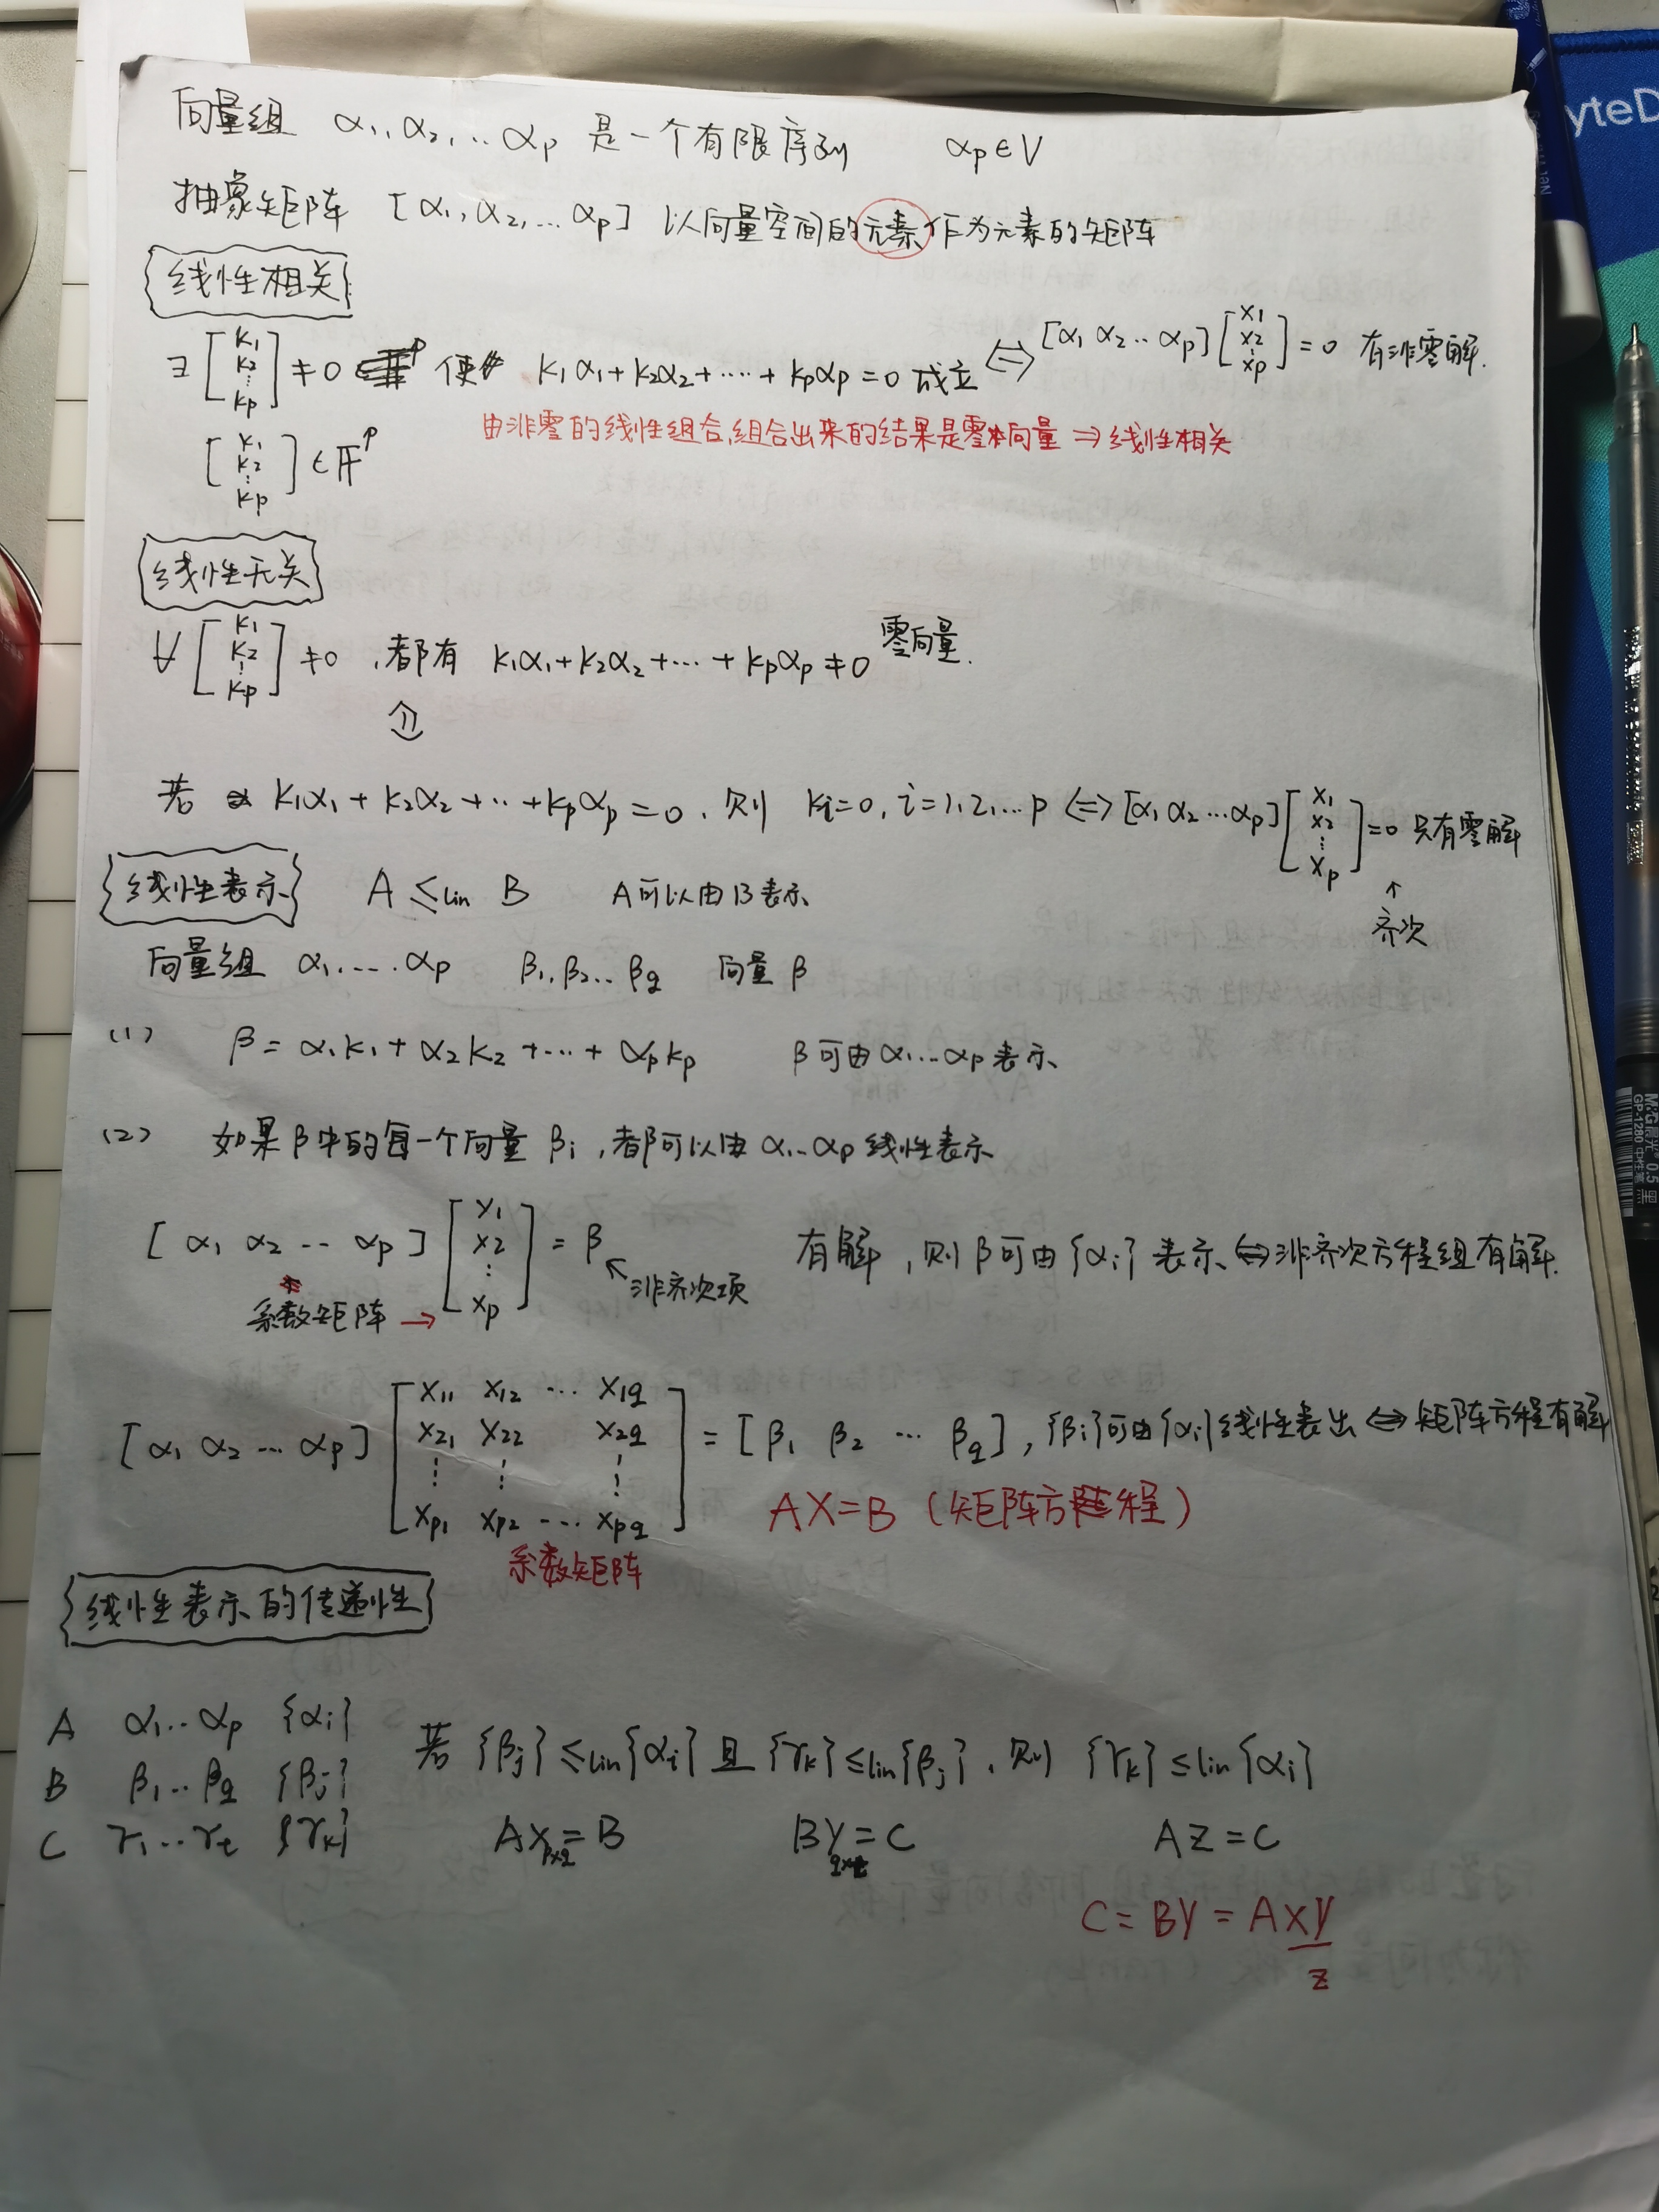 向量组 α₁, α₂, … αp 是一个有限序列 αp∈V
抽象矩阵 [α₁, α₂, … αp] 以向量空间的元素作为元素的矩阵
线性相关
∃ [k₁ k₂ ⋮ kp] ≠0 使 k₁α₁+k₂α₂+⋯⋯+kpαp=0 成立 ⇔ [α₁ α₂ ‥ αp] [x₁ x₂ ⋮ xp] =0 有非零解.
由非零的线性组合,组合出来的结果是零向量 ⇒ 线性相关
[k₁ k₂ ⋮ kp] ∈ 𝔽ᵖ
线性无关
∀ [k₁ k₂ ⋮ kp] ≠0 , 都有 k₁α₁+k₂α₂+⋯+kpαp≠0 零向量.
⇕
若 k₁α₁+k₂α₂+⋯+kpαp=0. 则 ki=0, i=1,2,…p ⇔ [α₁ α₂ … αp] [x₁ x₂ ⋮ xp] =0 只有零解
↑
齐次
线性表示 A ≤lin B A可以由B表示
向量组 α₁,⋯αp β₁,β₂…βq 向量 β
(1) β= α₁k₁+α₂k₂+⋯+αpkp β可由α₁…αp表示
(2) 如果β中的每一个向量 βi , 都可以由 α₁…αp 线性表示
[α₁ α₂ ⋯ αp] [x₁ x₂ ⋮ xp] = β 有解, 则β可由{αi}表示 ⇔ 非齐次方程组有解.
↖ 非齐次项
系数矩阵 →
[α₁ α₂ ⋯ αp] [x₁₁ x₁₂ ⋯ x₁q
x₂₁ x₂₂ x₂q
⋮ ⋮ ⋮
xp₁ xp₂ ⋯ xpq] = [β₁ β₂ ⋯ βq], {βi}可由{αi}线性表出 ⇔ 矩阵方程有解
AX=B (矩阵方程)
系数矩阵
线性表示的传递性
A α₁‥αp {αi}
B β₁‥βq {βj}
C γ₁…γt {γk}
若 {βj} ≤lin{αi} 且 {γk} ≤lin{βj}, 则 {γk} ≤lin{αi}
AXp×q=B BYq×t=C AZ=C
C=BY=AXY
Z
M&G
GP-1280 中性笔
0.5
yteD